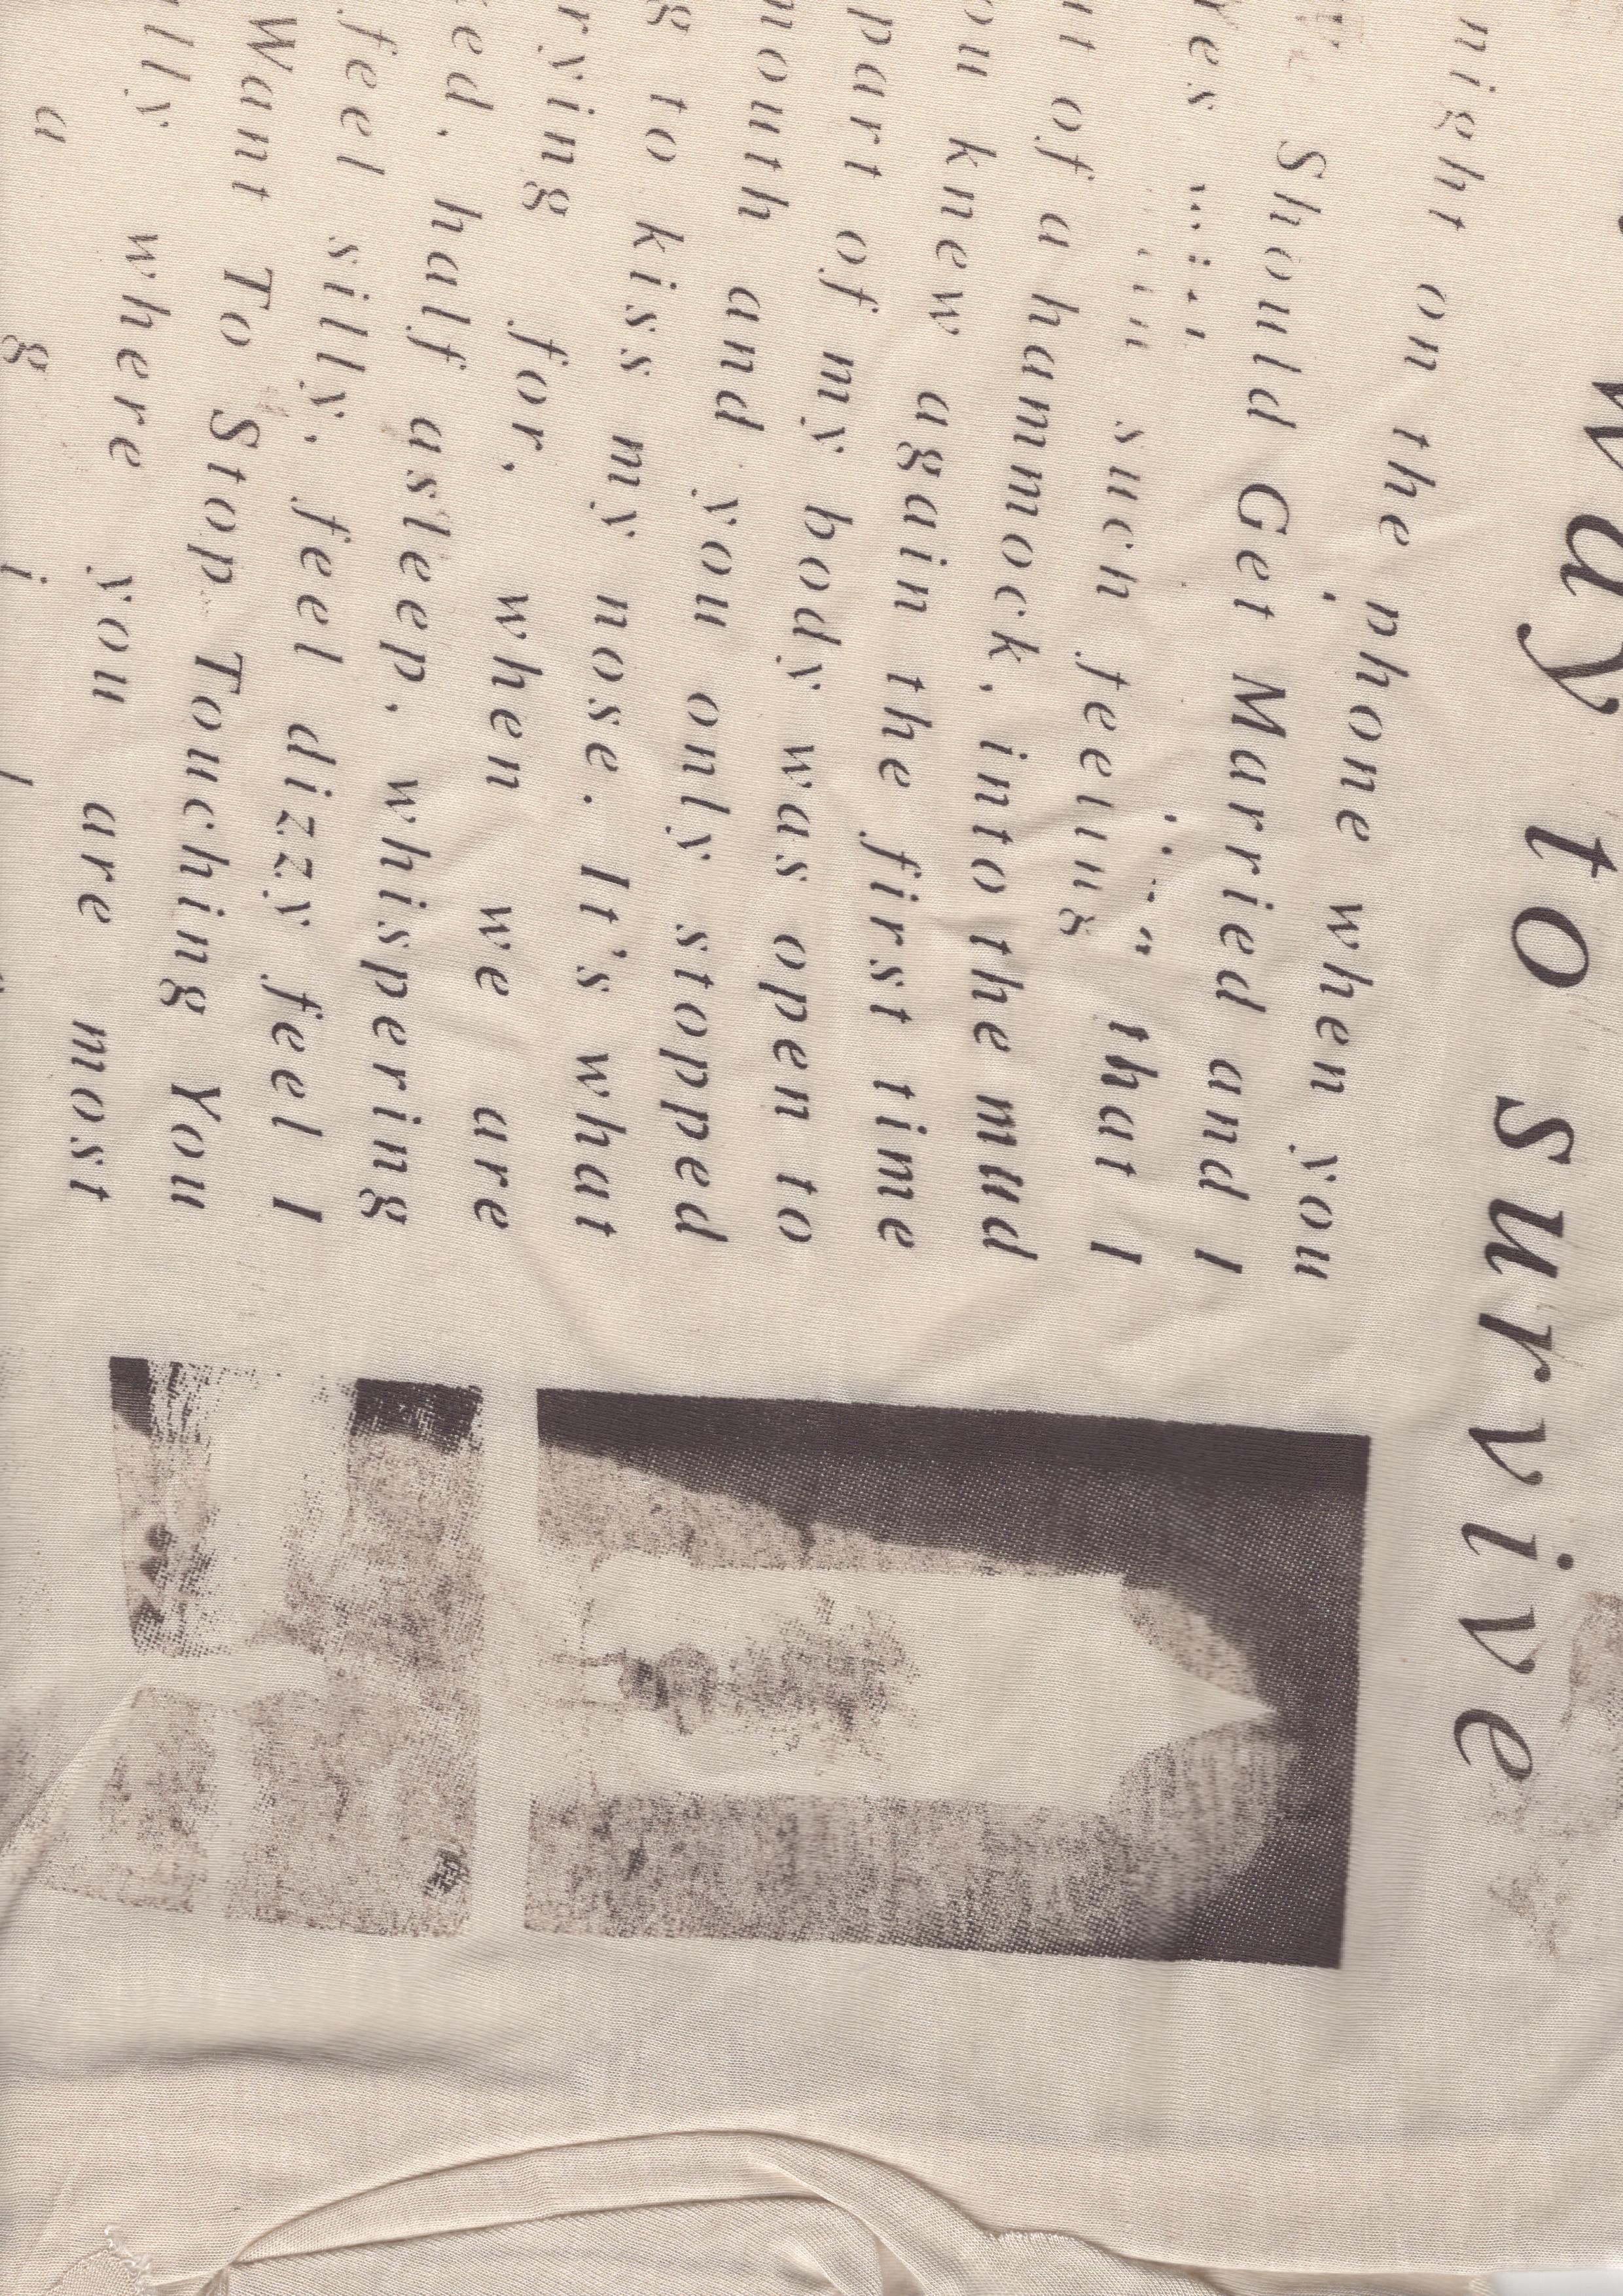 way to survive
night on the phone when you
Should Get Married and I
such feeling that I
of a hammock, into the mud
knew again the first time
part of my body was open to
mouth and you only stopped
to kiss my nose. It's what
for, when we are
half asleep, whispering
feel silly, feel dizzy feel I
Want To Stop Touching You
where you are most